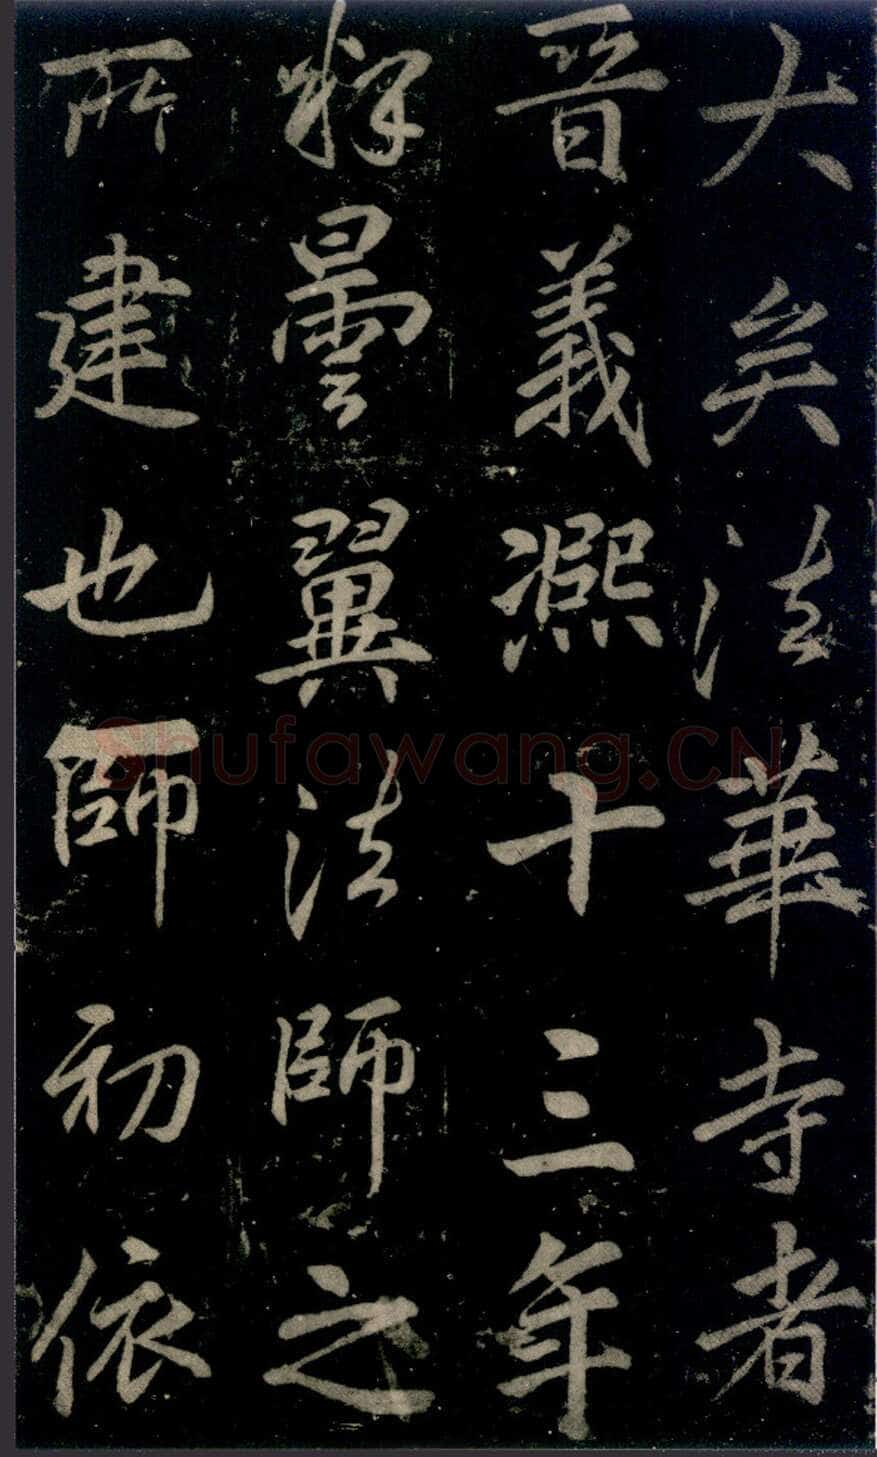 大矣法華寺者
晉義熙十三年
釋曇翼法師之
所建也師初依
Shufawang.CN